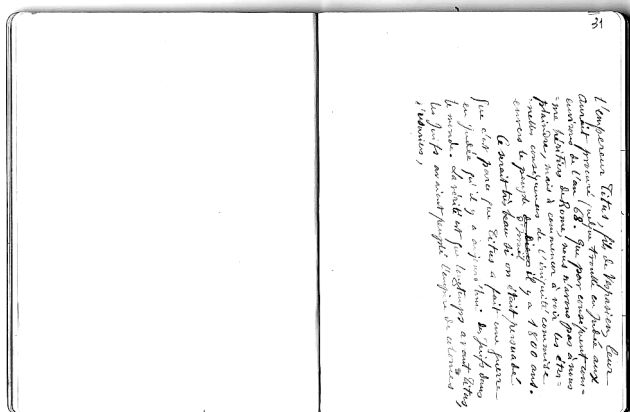 31
L'empereur Titus, fils de Vespasien, leur
aurait procuré quelque trouble en Judée aux
environs de l'an 68. Que par conséquent com-
-me héritiers de Rome, nous n'avons pas à nous
plaindre, mais à commencer à voir les éter-
-nelles conséquences de l'iniquité commise
envers le peuple d'Israël il y a 1800 ans.
Ce serait très beau si on était persuadé
que c'est parce que Titus a fait une guerre
en Judée qu'il y a aujourd'hui des Juifs dans
le monde. La vérité est que longtemps avant Titus,
les Juifs avaient peuplé l'empire de colonies
d'usuriers,